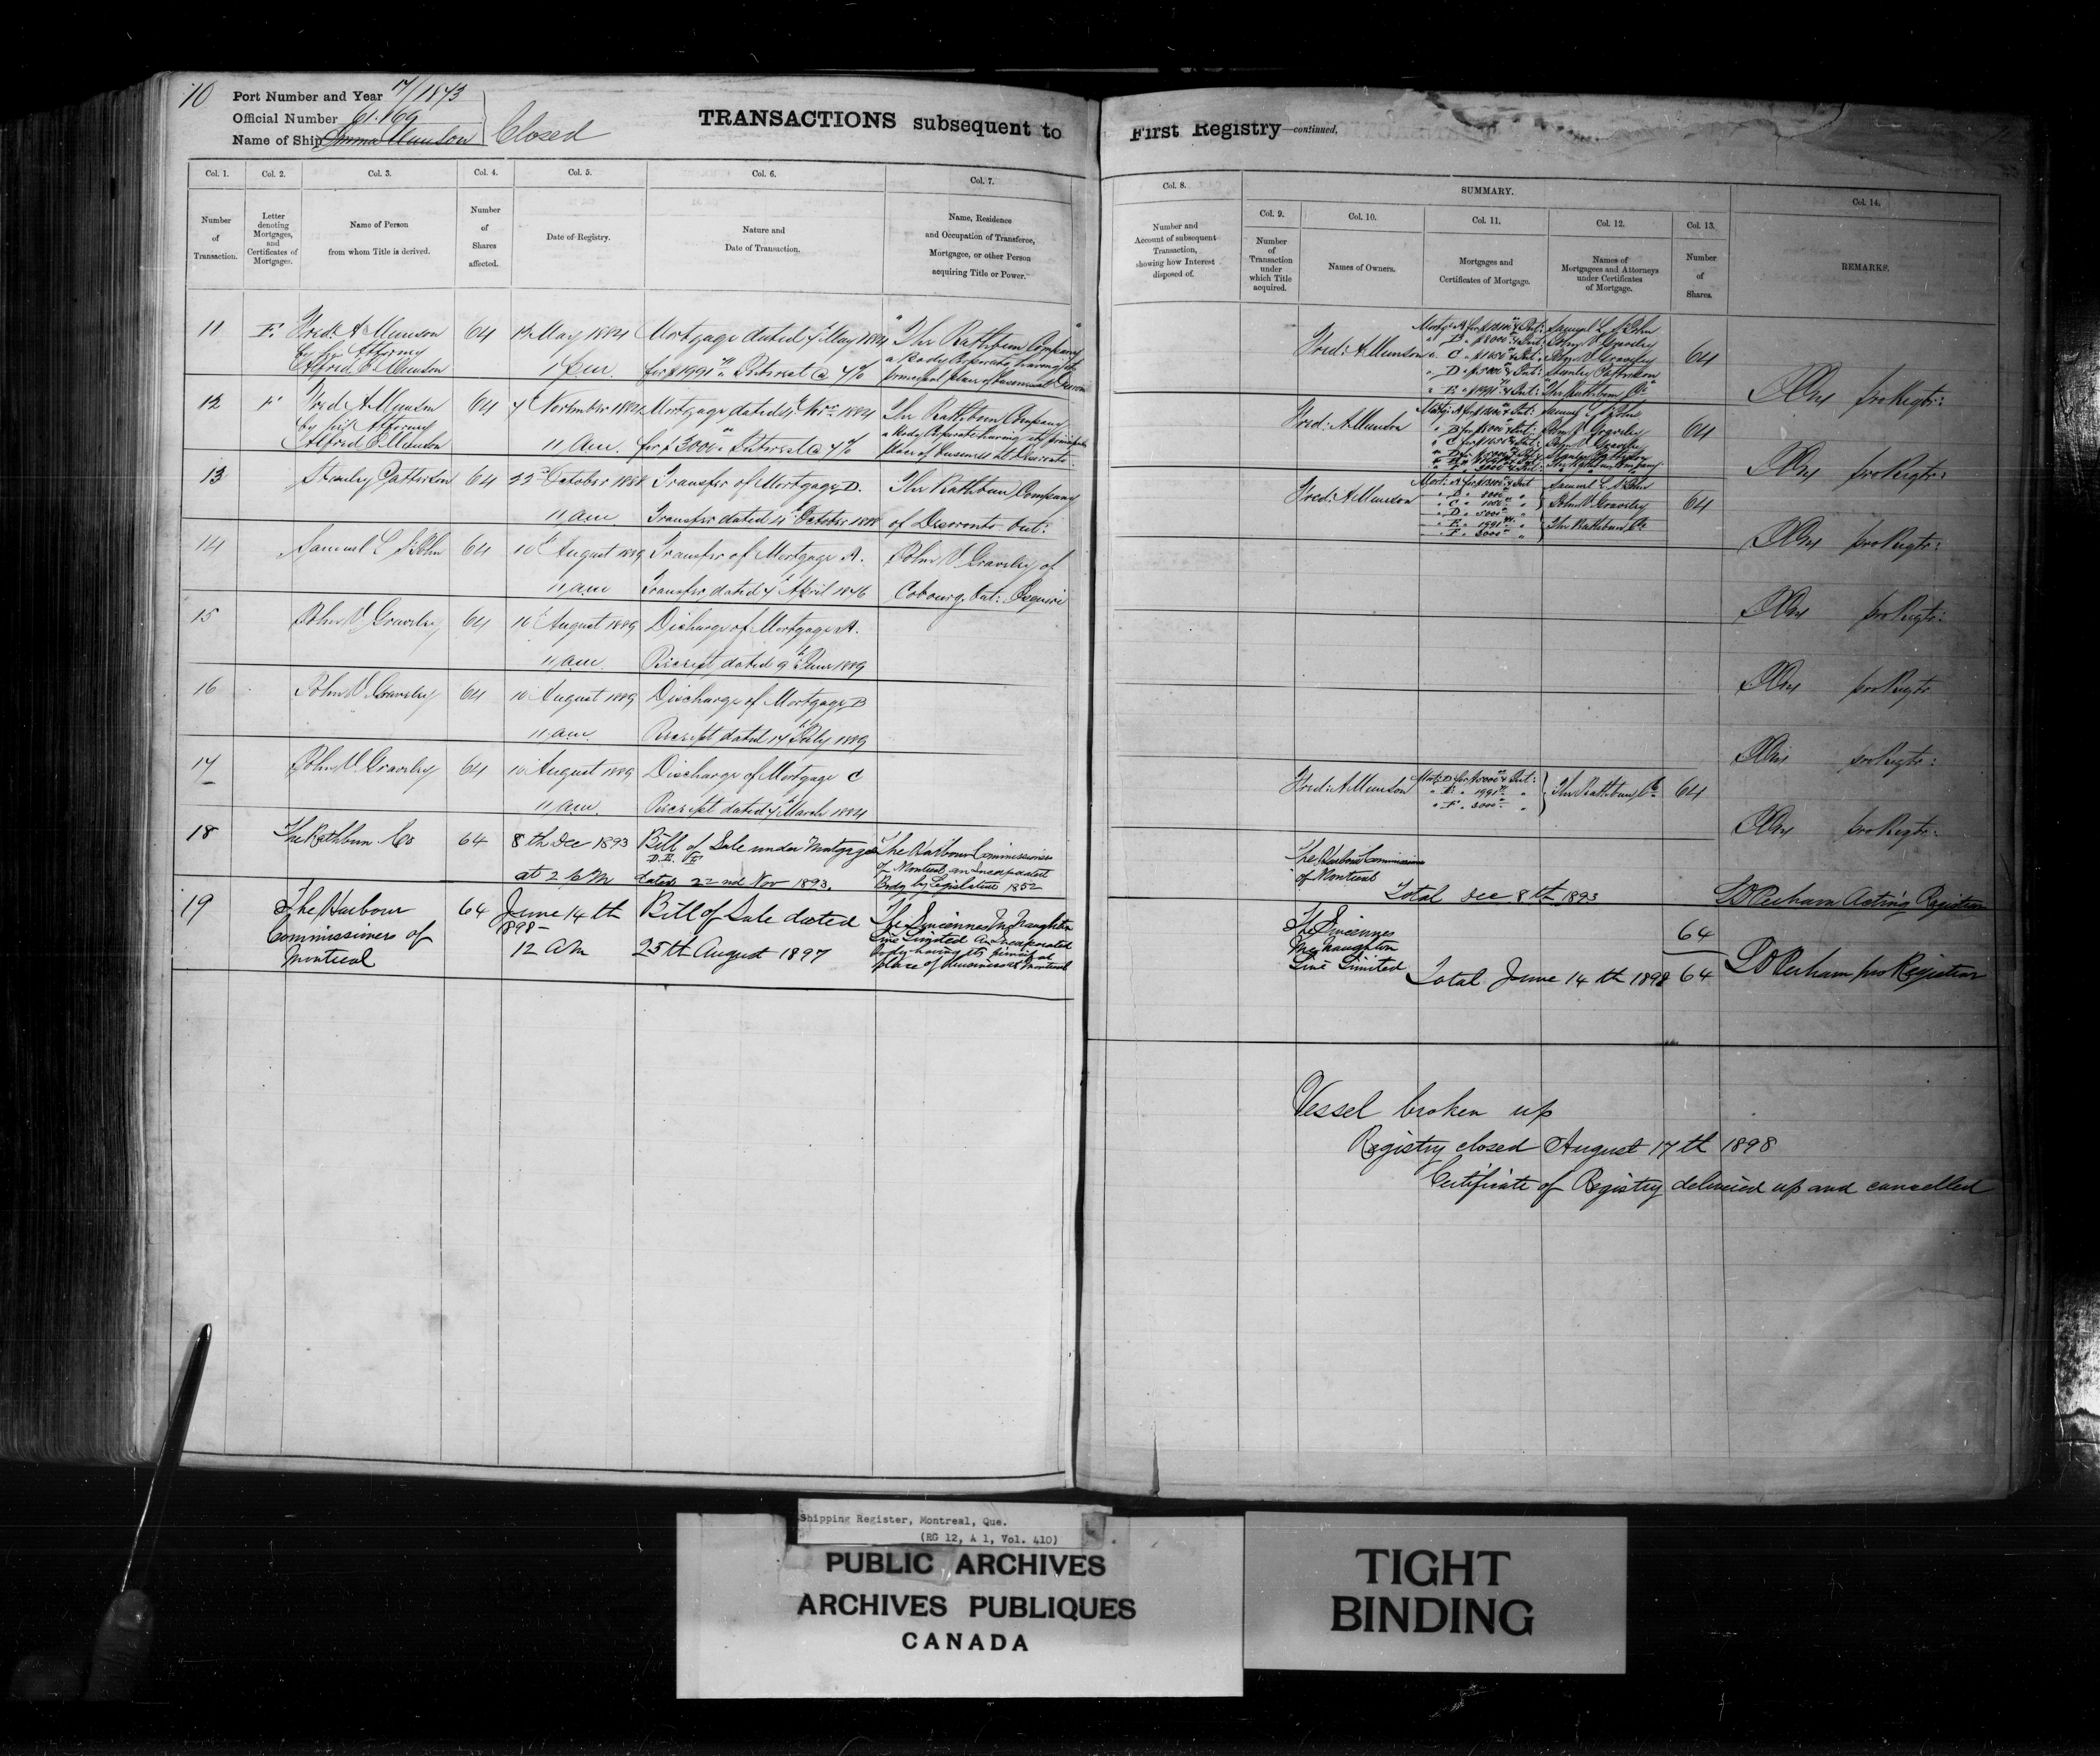 70
Port Number and Year 7/1873
Official Number 61.169
Name of Ship Emma Munson
Closed
TRANSACTIONS subsequent to First Registry—continued.
Col. 1. Col. 2. Col. 3. Col. 4. Col. 5. Col. 6. Col. 7. Col. 8. SUMMARY. Col. 14.
Col. 9. Col. 10. Col. 11. Col. 12. Col. 13.
Number of Transaction.
Letter denoting Mortgages, and Certificates of Mortgages.
Name of Person from whom Title is derived.
Number of Shares affected.
Date of Registry.
Nature and Date of Transaction.
Name, Residence and Occupation of Transferee, Mortgagee, or other Person acquiring Title or Power.
Number and Account of subsequent Transaction, showing how Interest disposed of.
Number of Transaction under which Title acquired.
Names of Owners.
Mortgages and Certificates of Mortgage.
Names of Mortgagees and Attorneys under Certificates of Mortgage.
Number of Shares.
REMARKS.
11 E. Fred: A Munson 64 May 1884 Mortgage dated May 1884 "The Rathbun Company"
by his Attorney a Body Corporate having its
Alfred Munson 1 p.m. for $1991 Interest @ 7% principal place of business at Deseronto
Fred: A Munson 64
12 F Fred A Munson 64 November 1884 Mortgage dated Nov 1884 The Rathbun Company
by his Attorney a Body Corporate having its principal
Alfred Munson 11 am. for $3000 Interest @ 7% place of business at Deseronto
Fred: A Munson 64 pro Regtr:
13 Stanley Patterson 64 22 October 1888 Transfer of Mortgage D. The Rathbun Company
11 am Transfer dated October 1888 of Deseronto Ont:
Fred: A Munson 64 pro Regtr:
14 Samuel L St John 64 10 August 1889 Transfer of Mortgage A. John V Gravely of
11 am Transfer dated 7 April 1876 Cobourg, Ont: Esquire
pro Regtr:
15 John V Gravely 64 10 August 1889 Discharge of Mortgage A.
11 am. Receipt dated 9th June 1889
pro Regtr:
16 John V Gravely 64 10 August 1889 Discharge of Mortgage B
11 am. Receipt dated 17 July 1889
pro Regtr
17 John V. Gravely 64 10 August 1889 Discharge of Mortgage C
11 am. Receipt dated March 1884
Fred: A Munson The Rathbun Co 64
pro Regtr:
18 The Rathbun Co 64 8th Dec 1893 Bill of Sale under Mortgages The Harbour Commissioners
D.E. & F of Montreal an Incorporated
at 2 P.M dated 22nd Nov 1893. Body by Legislature 1852
The Harbour Commissioners
of Montreal
Total Dec 8th 1893
64
Perham Acting Registrar
19 The Harbour 64 June 14th Bill of Sale dated The Sincennes McNaughton
Commissioners of 1898 Line Limited an Incorporated
Montreal 12 AM 25th August 1897 body having its principal
place of business at Montreal
The Sincennes
McNaughton
Line Limited
Total June 14th 1898 64
Perham pro Registrar
Vessel broken up
Registry closed August 17th 1898
Certificate of Registry delivered up and cancelled
Shipping Register, Montreal, Que.
(RG 12, A 1, Vol. 410)
PUBLIC ARCHIVES
ARCHIVES PUBLIQUES
CANADA
TIGHT
BINDING